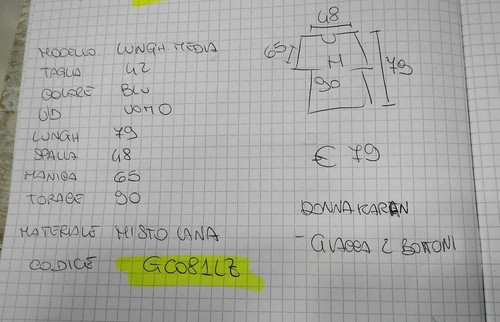 MODELLO LUNGH MEDIA
TAGLIA 42
COLORE BLU
U/D UOMO
LUNGH 79
SPALLA 48
MANICA 65
TORACE 90
MATERIALE MISTO LANA
CODICE GC081LZ
48
65
H
79
90
€ 79
DONNA KARAN
- GIACCA 2 BOTTONI